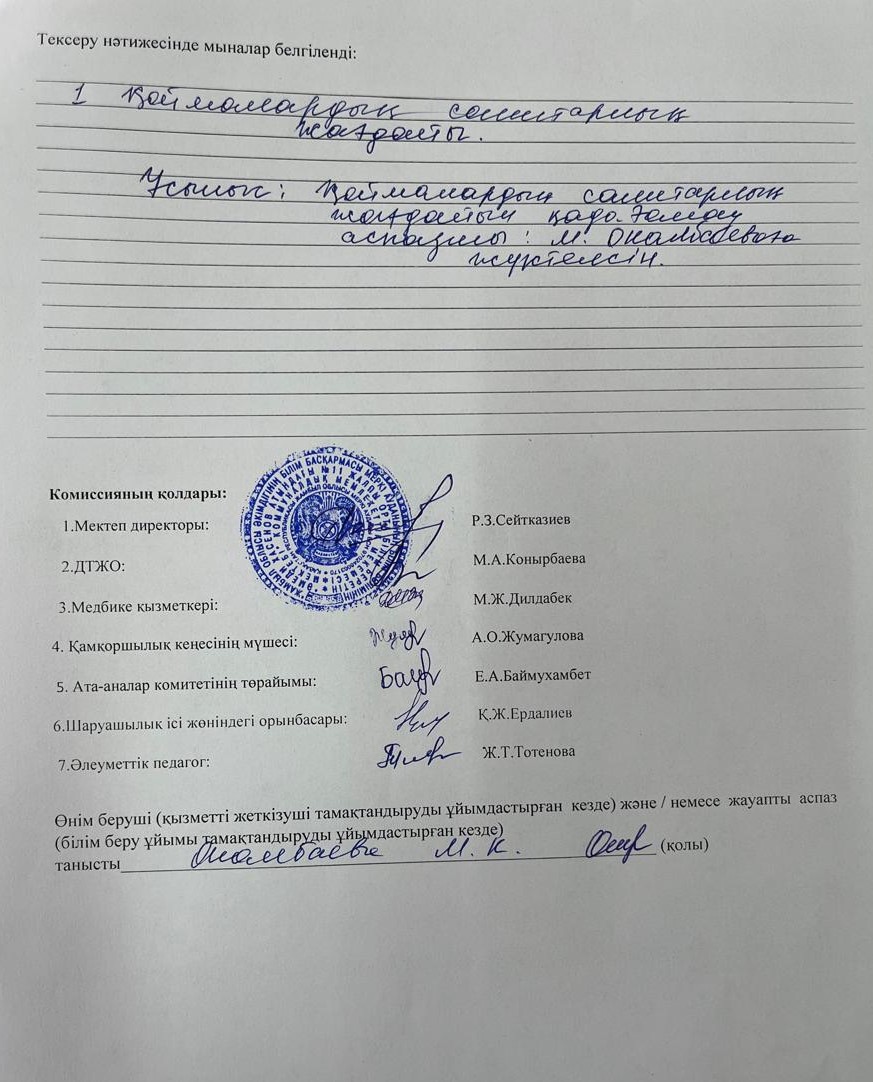 Тексеру нәтижесінде мыналар белгіленді:
1 Қоймалардың санитарлық
жағдайы.
Ұсыныс: Қоймалардың санитарлық
жағдайын қадағалау
аспазшы: М. Окамбаеваға
жүктелсін.
Комиссияның қолдары:
1.Мектеп директоры: Р.З.Сейтказиев
2.ДТЖО: М.А.Конырбаева
3.Медбике қызметкері: М.Ж.Дилдабек
4. Қамқоршылық кеңесінің мүшесі: А.О.Жумагулова
5. Ата-аналар комитетінің төрайымы: Е.А.Баймухамбет
6.Шаруашылық ісі жөніндегі орынбасары: Қ.Ж.Ердалиев
7.Әлеуметтік педагог: Ж.Т.Тотенова
Өнім беруші (қызметті жеткізуші тамақтандыруды ұйымдастырған кезде) және / немесе жауапты аспаз
(білім беру ұйымы тамақтандыруды ұйымдастырған кезде)
танысты Окамбаева М. К. (қолы)